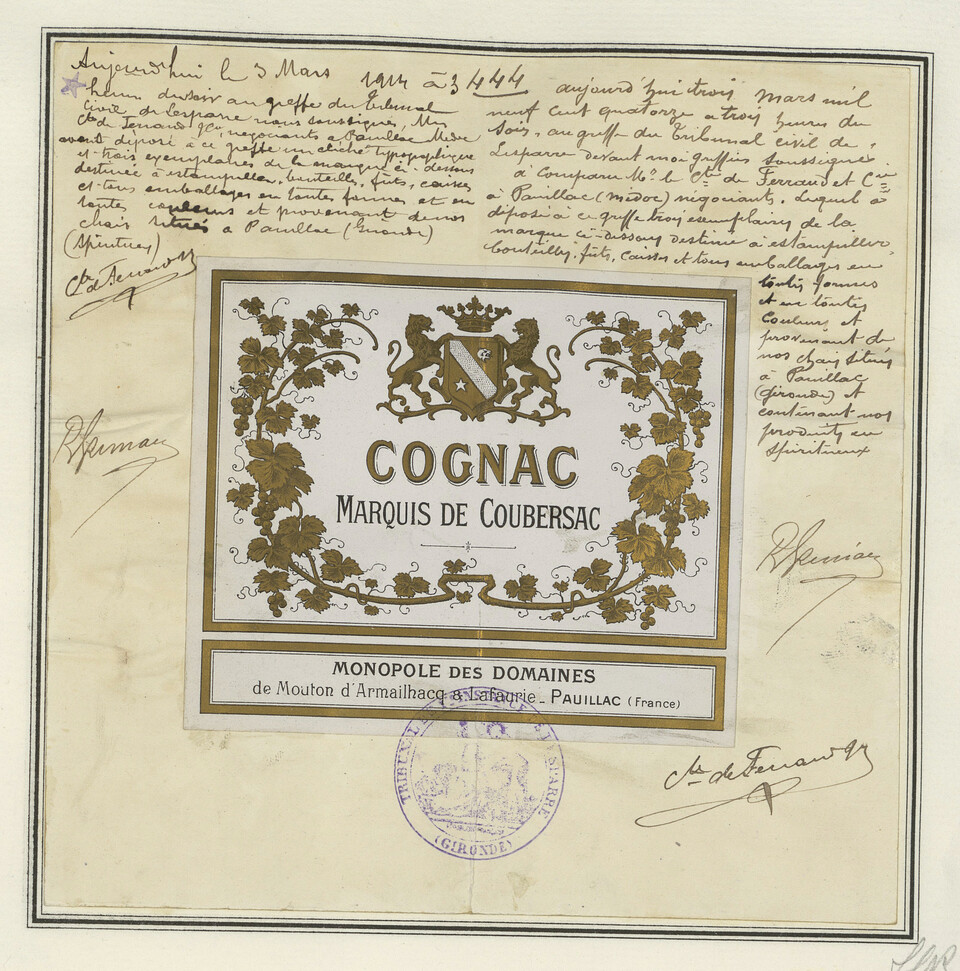 Aujourd'hui le 3 Mars 1914 à 3
heures du soir au greffe du Tribunal
Civil de Lesparre nous soussignés, Mrs
Cte de Ferrand & Cie, négociants à Pauillac Médoc
avont déposé à ce greffe un cliché typographique
et trois exemplaires de la marque ci-dessus
destinée à estampiller, bouteilles, fûts, caisses
et tous emballages en toutes formes et en
toutes couleurs et provenant de nos
chais situés à Pauillac (Gironde)
(Spiritueux)
Cte de Ferrand
444
aujourd'hui trois mars mil
neuf cent quatorze à trois heures du
soir, au greffe du Tribunal civil de
Lesparre devant moi greffier soussigné
a comparu Mr. le Cte de Ferrand et Cie
à Pauillac (médoc) négociants, lequel a
déposé à ce greffe trois exemplaires de la
marque ci-dessous destinée à estampiller
bouteilles, fûts, caisses et tous emballages en
toutes formes
et en toutes
couleurs et
provenant de
nos chais situés
à Pauillac
(gironde) et
contenant nos
produits en
spiritueux
COGNAC
MARQUIS DE COUBERSAC
MONOPOLE DES DOMAINES
de Mouton d'Armailhacq & Lafaurie _ PAUILLAC (France)
TRIBUNAL DE 1re INSTANCE LESPARRE
(GIRONDE)
Cte de Ferrand